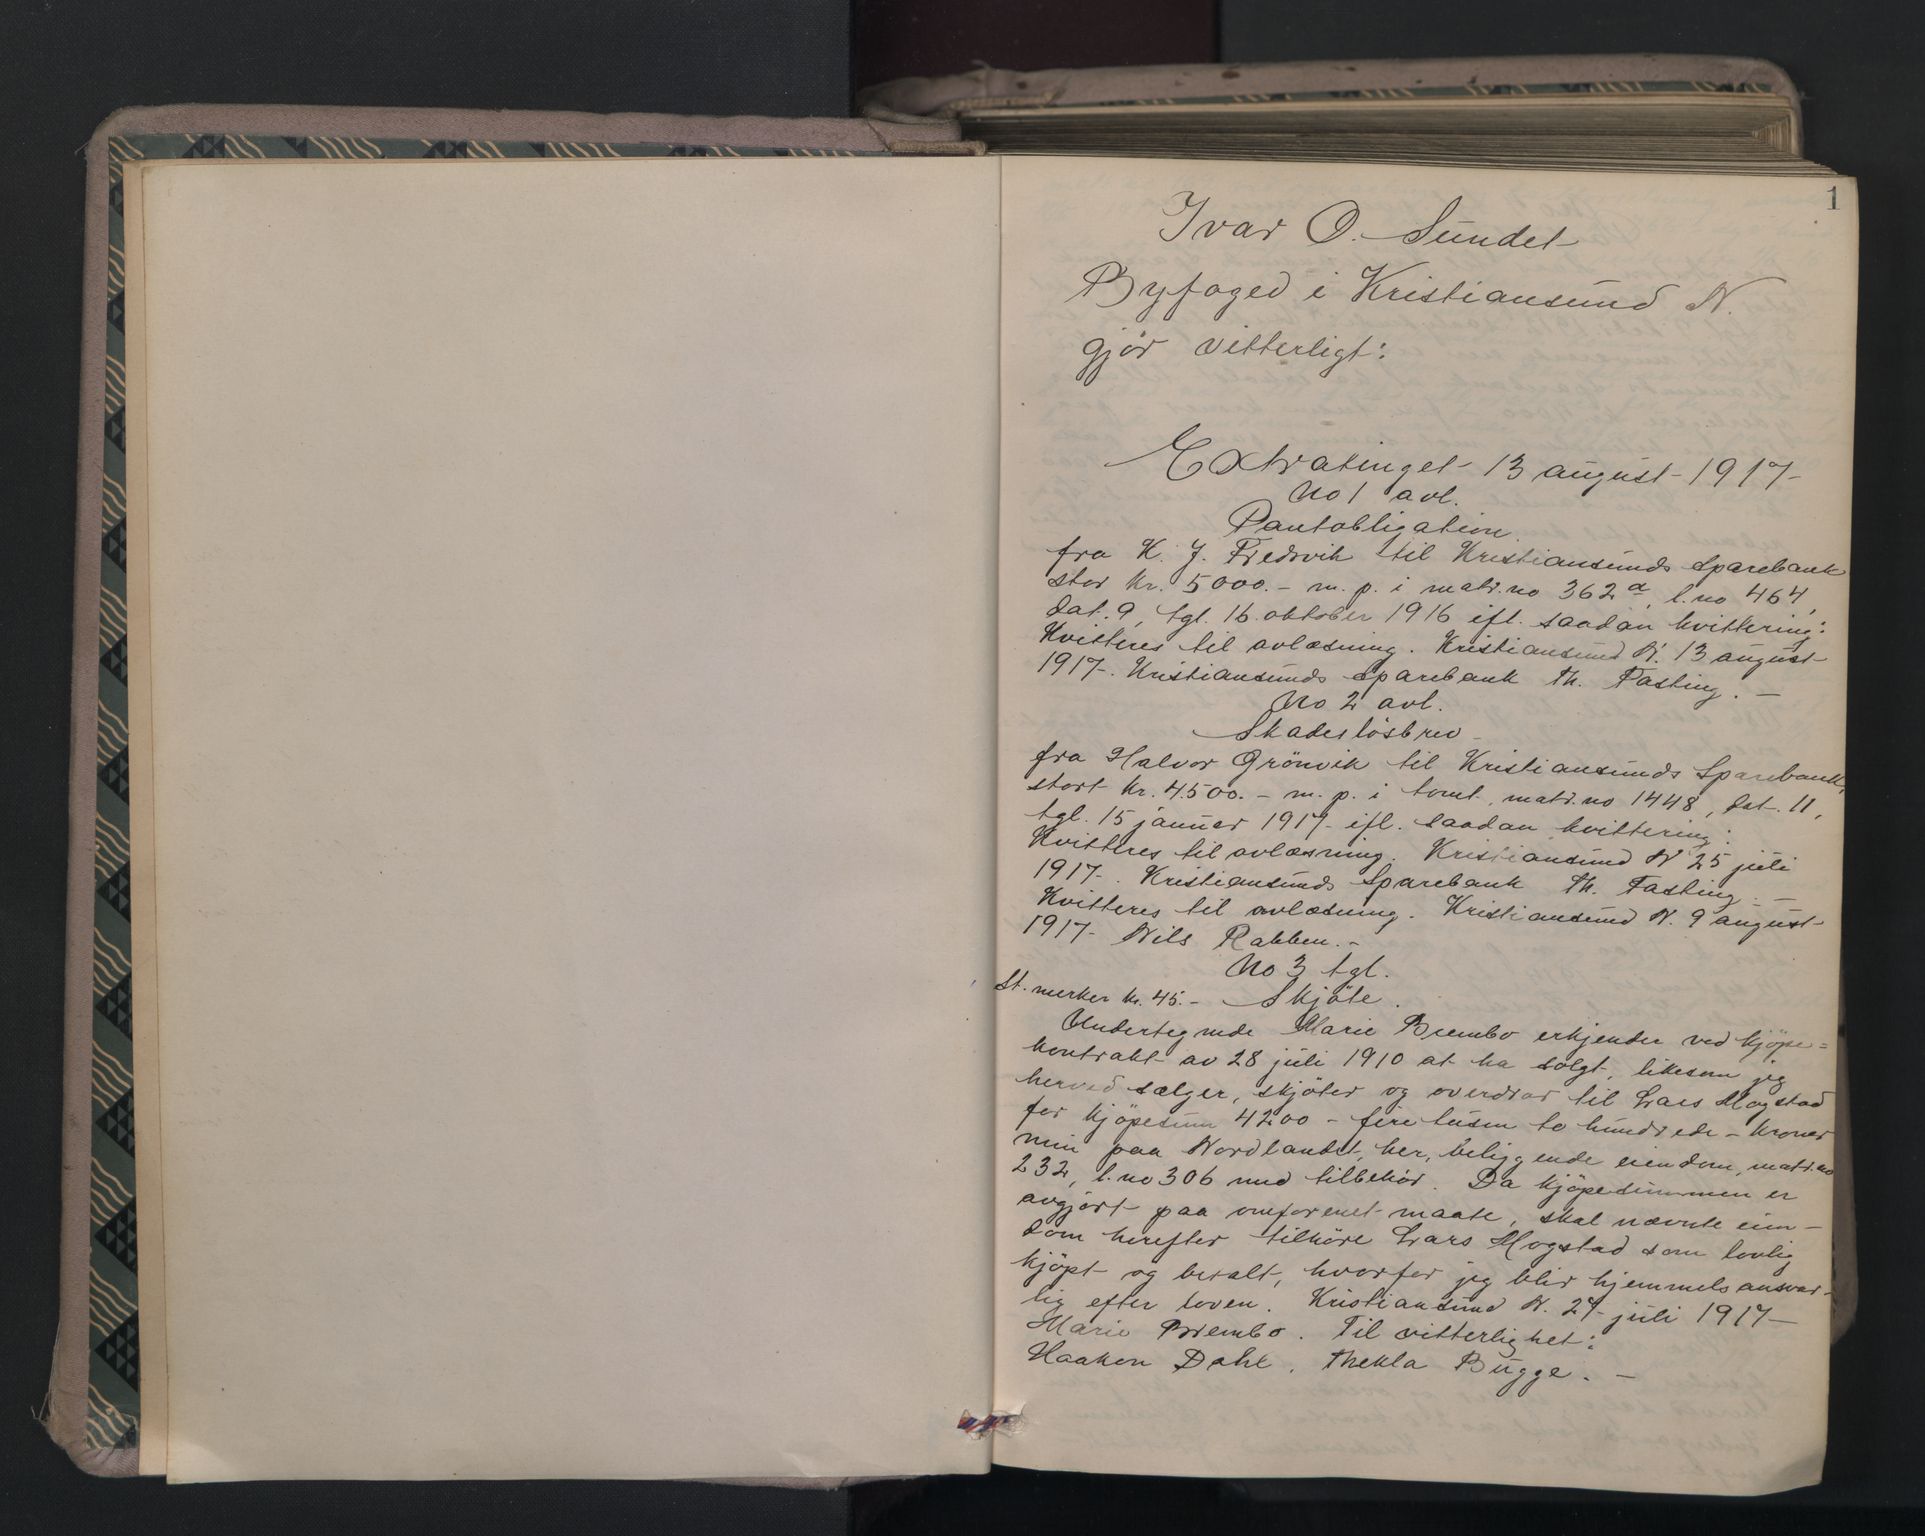 1
Ivar O. Sundet
Byfoged i Kristiansund N.
gjør vitterligt:
Extratinget 13 august 1917
No 1 avl.
Pantobligation
fra K. J. Fredsvik til Kristiansunds Sparebank
stor kr. 5000.- m. p. i matr.no 362a, l.no 464,
dat. 9, tgl. 16 oktober 1916 ifl. saadan kvittering:
Kvitteres til avlæsning. Kristiansund N. 13 august
1917. Kristiansunds Sparebank Th. Fasting. -
No 2 avl.
Skadesløsbrev
fra Halvor Grönvik til Kristiansunds Sparebank,
stort kr. 4500.- m. p. i tomt, matr.no 1448, dat. 11,
tgl. 15 januar 1917 ifl. saadan kvittering:
Kvitteres til avlæsning. Kristiansund N 25 juli
1917. Kristiansunds Sparebank Th. Fasting -
Kvitteres til avlæsning. Kristiansund N. 9 august
1917 Nils Rabben. -
No 3 tgl.
St. merker kr. 45.- Skjöte.
Undertegnede Marie Brembo erkjender ved kjöpe=
kontrakt av 28 juli 1910 at ha solgt, likesom jeg
herved sælger, skjöter og overdrar til Lars Mogstad
for kjöpesum 4200 - fire tusen to hundrede - kroner
min paa Nordlandet, her, beliggende eiendom, matr.no
232, l.no 306 med tilbehör. Da kjöpesummen er
avgjort paa omforenet maate, skal nævnte eien-
dom herefter tilhöre Lars Mogstad som lovlig
kjöpt og betalt, hvorfor jeg blir hjemmelsansvar-
lig efter loven. Kristiansund N. 27 juli 1917
Marie Brembo. Til vitterlighet:
Haakon Dahl, Thekla Bugge. -